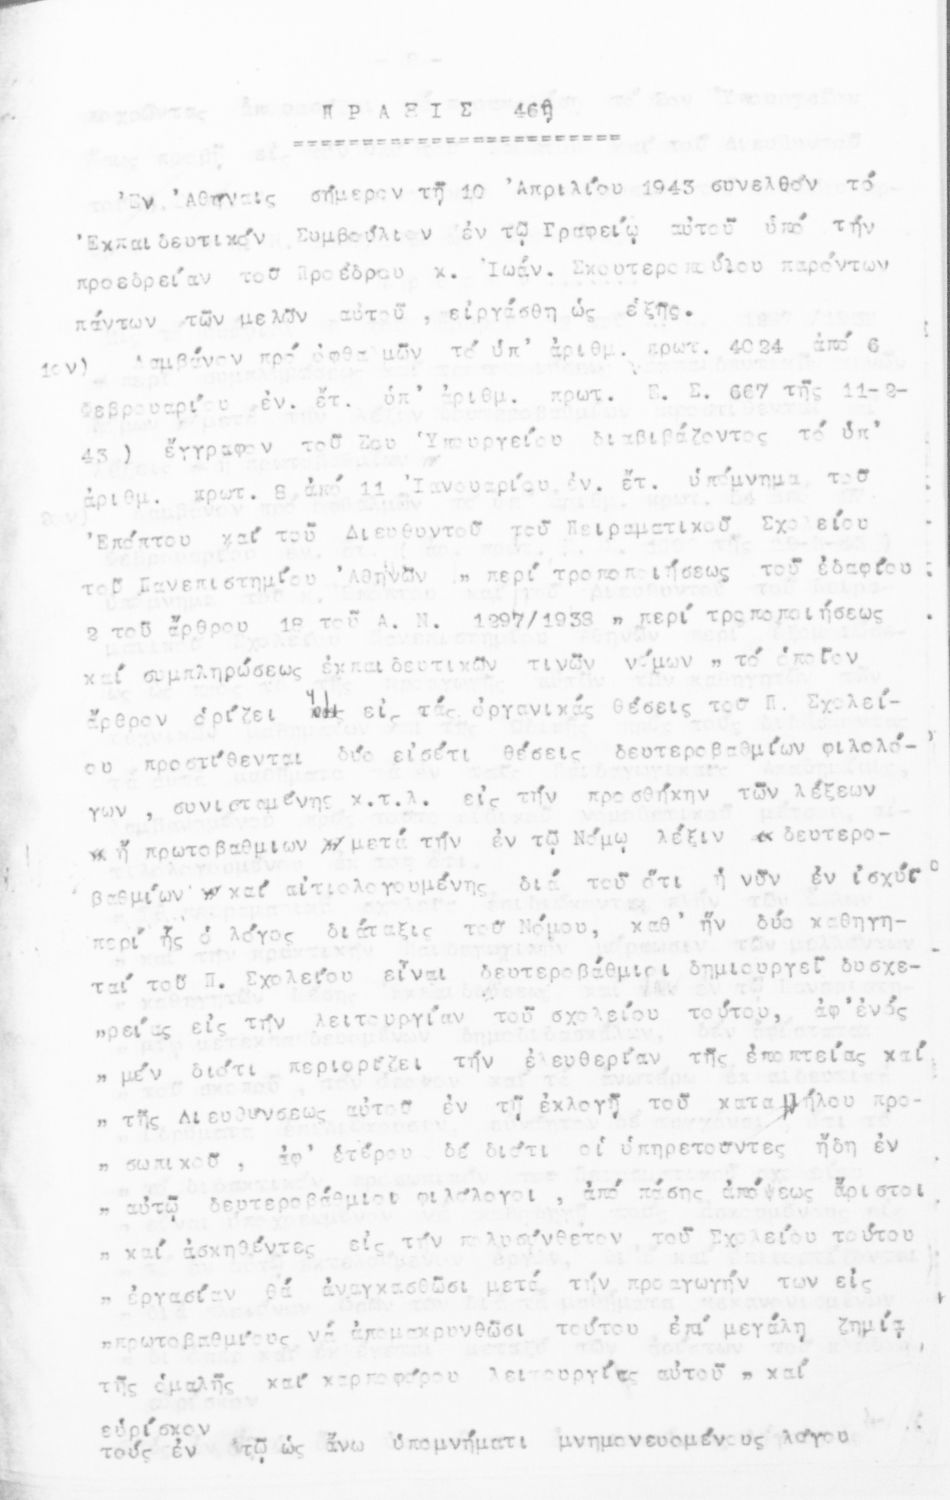 Π Ρ Α Ξ Ι Σ 46ῃ
Ἐν Ἀθήναις σήμερον τῇ 10 Ἀπριλίου 1943 συνελθόν τό
Ἐκπαιδευτικόν Συμβούλιον ἐν τῷ Γραφείῳ αὐτοῦ ὑπό τήν
προεδρείαν τοῦ Προέδρου κ. Ἰωάν. Σκουτεροπούλου παρόντων
πάντων τῶν μελῶν αὐτοῦ , εἰργάσθη ὡς ἑξῆς.
1ον) Λαμβάνον πρό ὀφθαλμῶν τό ὑπ' ἀριθμ. πρωτ. 4024 ἀπό 6
Φεβρουαρίου ἐν. ἔτ. ὑπ' ἀριθμ. πρωτ. Ε. Σ. 667 τῆς 11-2-
43 ) ἔγγραφον τοῦ Σου Ὑπουργείου διαβιβάζοντος τό ὑπ'
ἀριθμ. πρωτ. 8 ἀπό 11 Ἰανουαρίου ἐν. ἔτ. ὑπόμνημα τοῦ
Ἐπόπτου καί τοῦ Διευθυντοῦ τοῦ Πειραματικοῦ Σχολείου
τοῦ Πανεπιστημίου Ἀθηνῶν " περί τροποποιήσεως τοῦ ἐδαφίου
2 τοῦ ἄρθρου 18 τοῦ Α. Ν. 1297/1938 " περί τροποποιήσεως
καί συμπληρώσεως ἐκπαιδευτικῶν τινῶν νόμων " τό ὁποῖον
ἄρθρον ὁρίζει εἰς τάς ὀργανικάς θέσεις τοῦ Π. Σχολεί-
ου προστίθενται δύο εἰσέτι θέσεις δευτεροβαθμίων φιλολό-
γων , συνισταμένης κ.τ.λ. εἰς τήν προσθήκην τῶν λέξεων
" ἤ πρωτοβαθμιων " μετά τήν ἐν τῷ Νόμῳ λέξιν " δευτερο-
βαθμίων " καί αἰτιολογουμένης διά τοῦ ὅτι ἡ νῦν ἐν ἰσχύϊ
περί ἧς ὁ λόγος διάταξις τοῦ Νόμου, καθ' ἥν δύο καθηγη-
ταί τοῦ Π. Σχολείου εἶναι δευτεροβάθμιοι δημιουργεῖ δυσχε-
"ρείας εἰς τήν λειτουργίαν τοῦ σχολείου τούτου, ἀφ'ἑνός
" μέν διότι περιορίζει τήν ἐλευθερίαν τῆς ἐποπτείας καί
" τῆς Διευθύνσεως αὐτοῦ ἐν τῇ ἐκλογῇ τοῦ καταλλήλου προ-
" σωπικοῦ , ἀφ' ἑτέρου δέ διότι οἱ ὑπηρετοῦντες ἤδη ἐν
" αὐτῷ δευτεροβάθμιοι φιλόλογοι , ἀπό πάσης ἀπόψεως ἄριστοι
" καί ἀσκηθέντες εἰς τήν πολυσύνθετον τοῦ Σχολείου τούτου
" ἐργασίαν θά ἀναγκασθῶσι μετά τήν προαγωγήν των εἰς
"πρωτοβαθμίους νά ἀπομακρυνθῶσι τούτου ἐπί μεγάλῃ ζημίᾳ
τῆς ὁμαλῆς καί καρποφόρου λειτουργίας αὐτοῦ " καί
εὑρίσκον
τούς ἐν τῷ ὡς ἄνω ὑπομνήματι μνημονευομένους λόγου